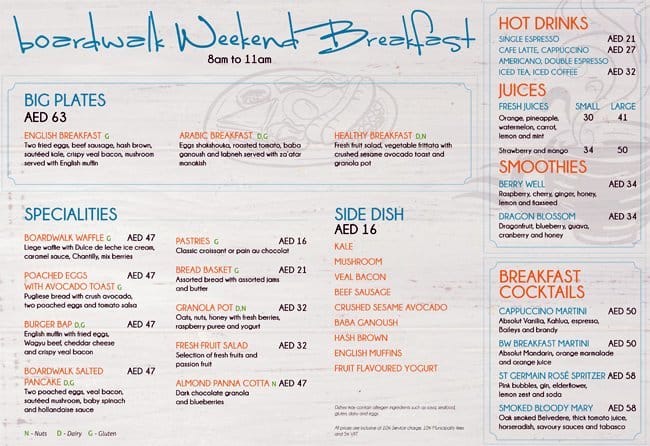 boardwalk Weekend Breakfast
8am to 11am
BIG PLATES
AED 63
ENGLISH BREAKFAST G
Two fried eggs, beef sausage, hash brown,
sautéed kale, crispy veal bacon, mushroom
served with English muffin
ARABIC BREAKFAST D,G
Eggs shakshouka, roasted tomato, baba
ganoush and labneh served with za'atar
manakish
HEALTHY BREAKFAST D,N
Fresh fruit salad, vegetable frittata with
crushed sesame avocado toast and
granola pot
SPECIALITIES
BOARDWALK WAFFLE G AED 47
Liege waffle with Dulce de leche ice cream,
caramel sauce, Chantilly, mix berries
POACHED EGGS AED 47
WITH AVOCADO TOAST G
Pugliese bread with crush avocado,
two poached eggs and tomato salsa
BURGER BAP D,G AED 47
English muffin with fried eggs,
Wagyu beef, cheddar cheese
and crispy veal bacon
BOARDWALK SALTED AED 47
PANCAKE D,G
Two poached eggs, veal bacon,
sautéed mushroom, baby spinach
and hollandaise sauce
N - Nuts D - Dairy G - Gluten
PASTRIES G AED 16
Classic croissant or pain au chocolat
BREAD BASKET G AED 21
Assorted bread with assorted jams
and butter
GRANOLA POT D,N AED 32
Oats, nuts, honey with fresh berries,
raspberry puree and yogurt
FRESH FRUIT SALAD AED 32
Selection of fresh fruits and
passion fruit
ALMOND PANNA COTTA N AED 47
Dark chocolate granola
and blueberries
SIDE DISH
AED 16
KALE
MUSHROOM
VEAL BACON
BEEF SAUSAGE
CRUSHED SESAME AVOCADO
BABA GANOUSH
HASH BROWN
ENGLISH MUFFINS
FRUIT FLAVOURED YOGURT
Dishes may contain allergen ingredients such as soya, seafood,
gluten, dairy and eggs
All prices are inclusive of 10% Service charge, 10% Municipality Fees
and 5% VAT
HOT DRINKS
SINGLE ESPRESSO AED 21
CAFE LATTE, CAPPUCCINO AED 27
AMERICANO, DOUBLE ESPRESSO
ICED TEA, ICED COFFEE AED 32
JUICES
FRESH JUICES SMALL LARGE
Orange, pineapple, 30 41
watermelon, carrot,
lemon and mint
Strawberry and mango 34 50
SMOOTHIES
BERRY WELL AED 34
Raspberry, cherry, ginger, honey,
lemon and flaxseed
DRAGON BLOSSOM AED 34
Dragonfruit, blueberry, guava,
cranberry and honey
BREAKFAST
COCKTAILS
CAPPUCCINO MARTINI AED 50
Absolut Vanilla, Kahlua, espresso,
Baileys and brandy
BW BREAKFAST MARTINI AED 50
Absolut Mandarin, orange marmalade
and orange juice
ST GERMAIN ROSÉ SPRITZER AED 58
Pink bubbles, gin, elderflower,
lemon zest and soda
SMOKED BLOODY MARY AED 58
Oak smoked Belvedere, thick tomato juice,
horseradish, savoury sauces and tabasco